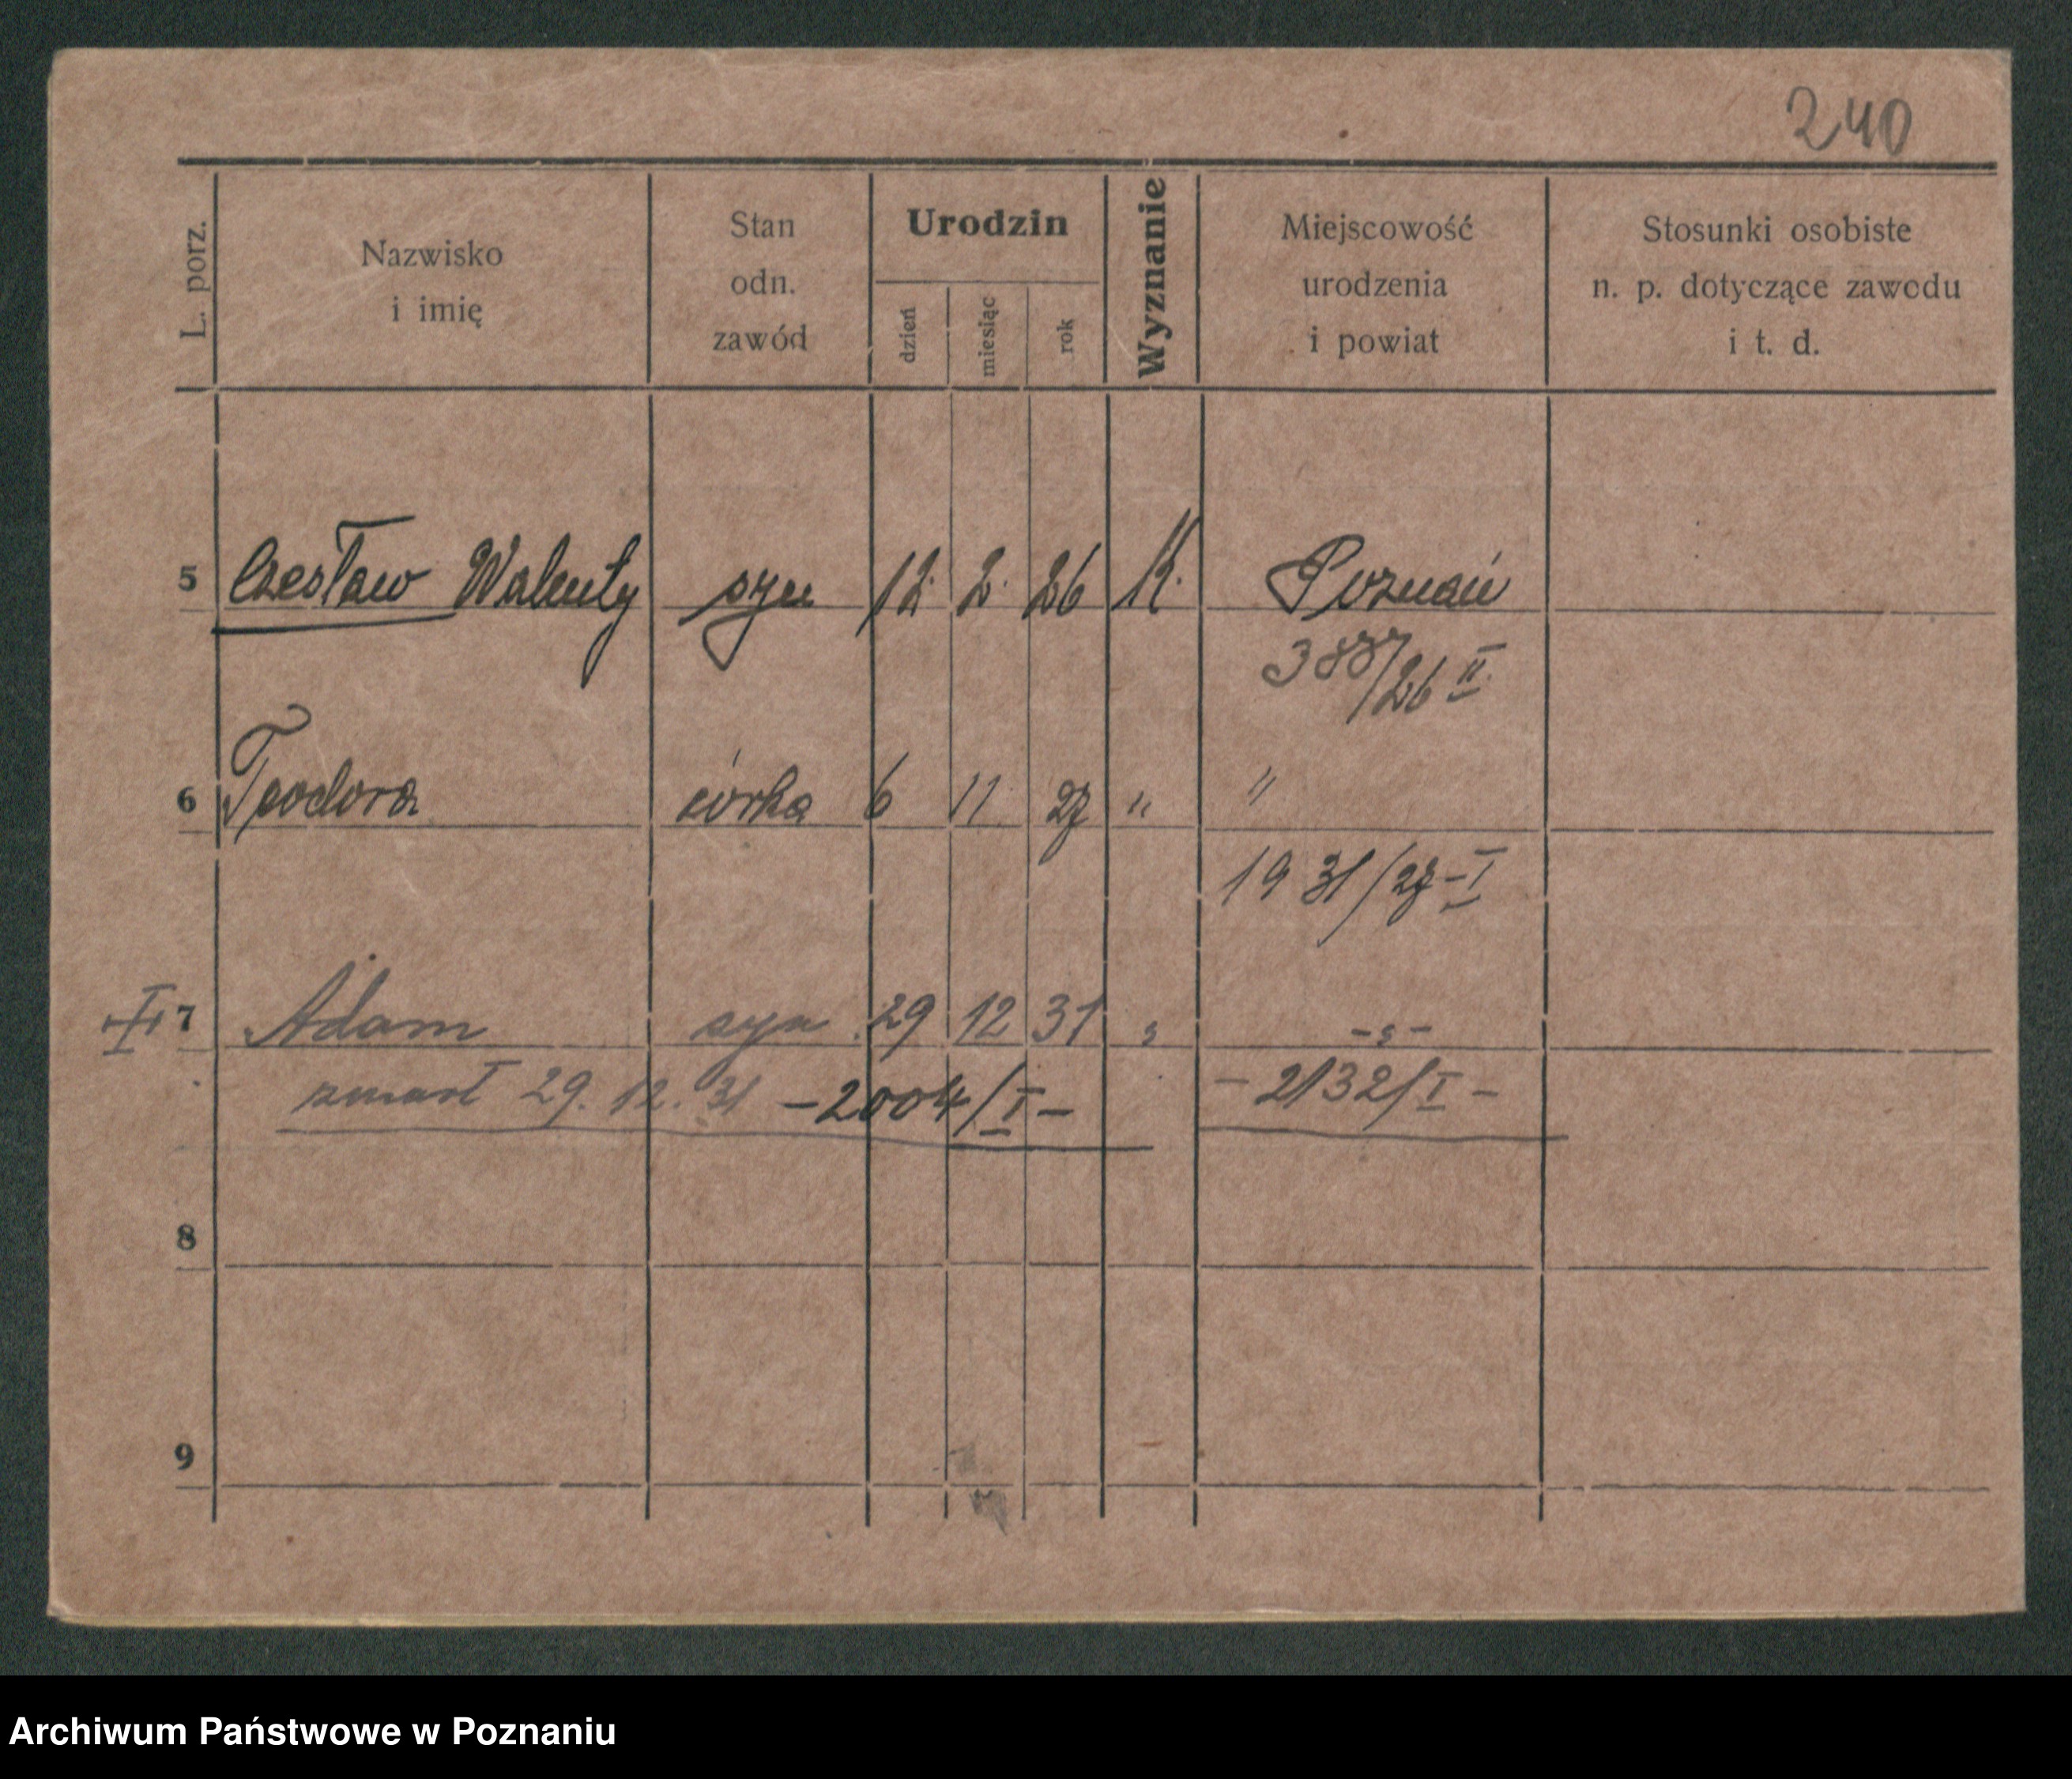 240
L. porz.
Nazwisko
i imię
Stan
odn.
zawód
Urodzin
dzień
miesiąc
rok
Wyznanie
Miejscowość
urodzenia
i powiat
Stosunki osobiste
n. p. dotyczące zawodu
i t. d.
5 Czesław Walenty syn 12. 2. 26 K. Poznań
388/26 II
6 Teodora córka 6 11 27 " "
1931/27-I
7 Adam syn 29 12 31 " -"-
zmarł 29. 12. 31 -2004/I- -2132/I-
8
9
Archiwum Państwowe w Poznaniu